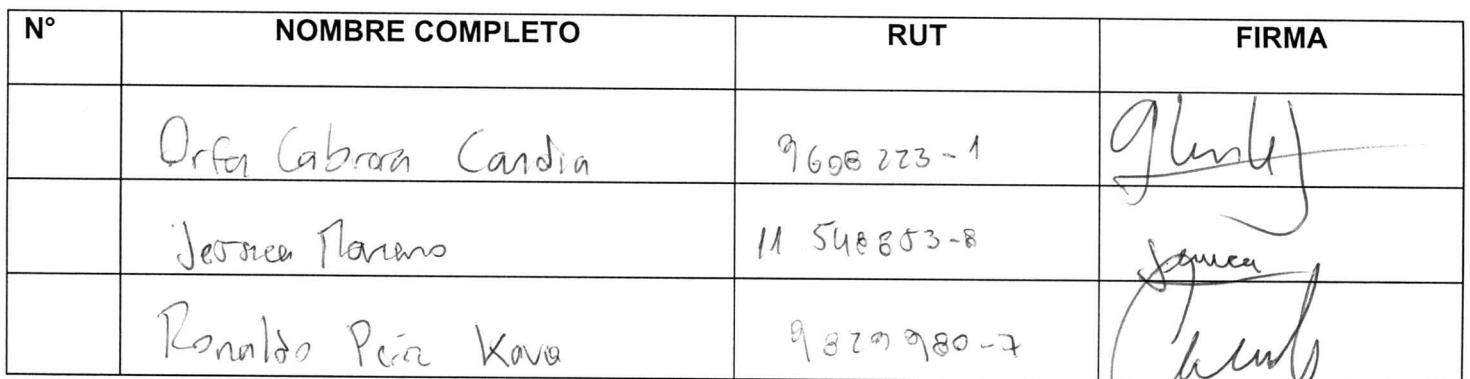 N° NOMBRE COMPLETO RUT FIRMA
Orfa Cabrera Candia 9608223-1
Jessica Moreno 11 548853-8
Ronaldo Peña Kova 9829980-7